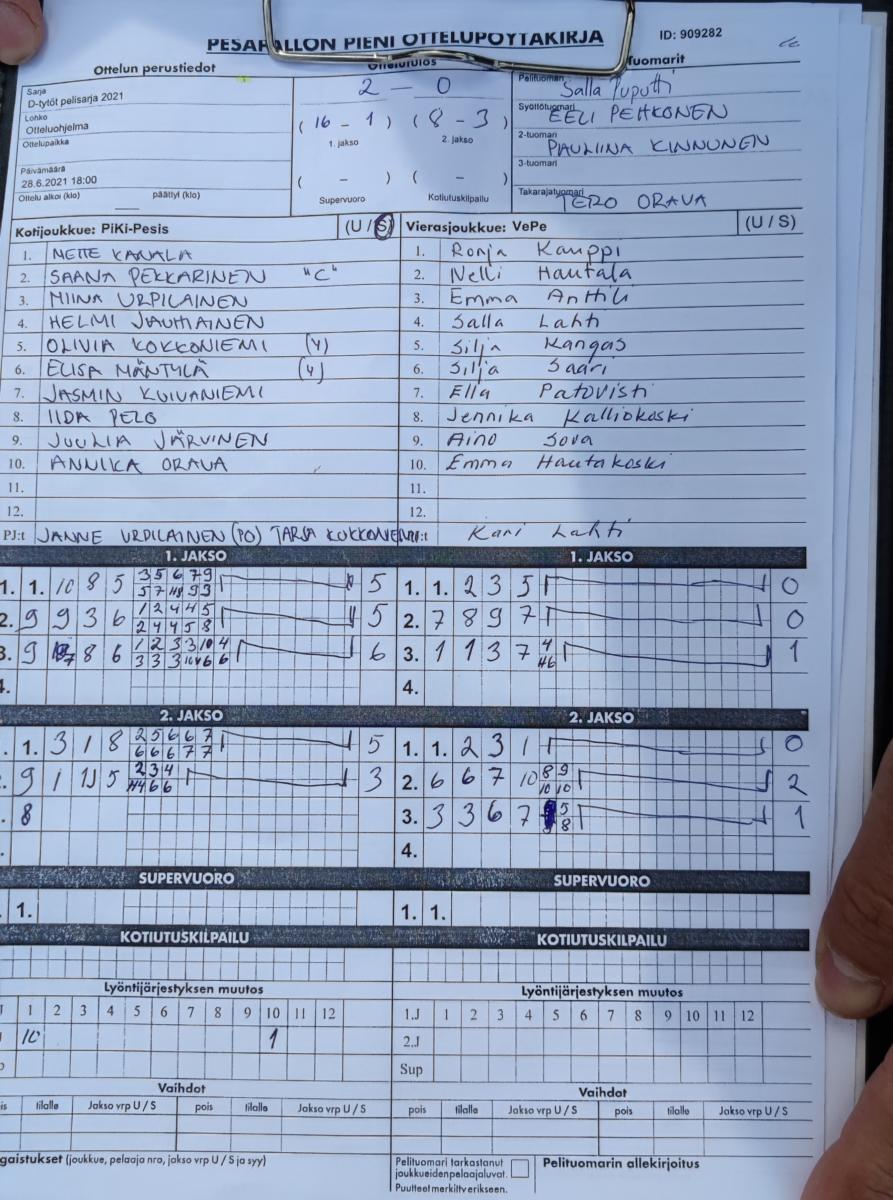 PESÄPALLON PIENI OTTELUPÖYTÄKIRJA
ID: 909282
Ottelun perustiedot
Ottelutulos
Sarja
D-tytöt pelisarja 2021
Lohko
Otteluohjelma
Ottelupaikka
Päivämäärä
28.6.2021 18:00
Ottelu alkoi (klo) päättyi (klo)
2 - 0
(16 - 1) (8 - 3)
1. jakso 2. jakso
( - ) ( - )
Supervuoro Kotiutuskilpailu
Pelituomari Salla Puputti
Syöttötuomari EELI PEHKONEN
2-tuomari PAULIINA KINNUNEN
3-tuomari
Takarajatuomari TERO ORAVA
Kotijoukkue: PiKi-Pesis (U / S)
1. NETTE KANALA
2. SAANA PEKKARINEN "C"
3. MIINA URPILAINEN
4. HELMI JAUHIAINEN
5. OLIVIA KOKKONIEMI (Y)
6. ELISA MÄNTYLÄ (Y)
7. JASMIN KUIVANIEMI
8. IIDA PELO
9. JUULIA JÄRVINEN
10. ANNIKA ORAVA
11.
12.
PJ:t JANNE URPILAINEN (PO) TARJA KOKKONIEMI
Vierasjoukkue: VePe (U / S)
1. Ronja Kauppi
2. Nelli Hautala
3. Emma Anttila
4. Salla Lahti
5. Silja Kangas
6. Silja Saari
7. Ella Patovisti
8. Jennika Kalliokoski
9. Aino Sova
10. Emma Hautakoski
11.
12.
PJ:t Kari Lahti
1. JAKSO
1. 1. 10 8 5 3 5 6 7 9 5
2. 9 9 3 6 1 2 4 4 5 2 4 4 5 8 5
3. 9 8 6 1 2 3 3 10 4 6
4.
1. JAKSO
1. 1. 2 3 5 0
2. 7 8 9 7 0
3. 1 1 3 7 4 1
4.
2. JAKSO
1. 3 1 8 2 5 6 6 7 6 6 6 7 7 5
9 1 5 2 3 4 3
8
2. JAKSO
1. 1. 2 3 1 0
2. 6 6 7 10 8 9 10 10 2
3. 3 3 6 7 5 8 1
4.
SUPERVUORO
1.
SUPERVUORO
1. 1.
KOTIUTUSKILPAILU
KOTIUTUSKILPAILU
Lyöntijärjestyksen muutos
1 2 3 4 5 6 7 8 9 10 11 12
10 1
Lyöntijärjestyksen muutos
1.J 1 2 3 4 5 6 7 8 9 10 11 12
2.J
Sup
Vaihdot
tilalle Jakso vrp U / S pois tilalle Jakso vrp U / S
Vaihdot
pois tilalle Jakso vrp U / S pois tilalle Jakso vrp U / S
gaistukset (joukkue, pelaaja nro, jakso vrp U / S ja syy)
Pelituomari tarkastanut
joukkueidenpelaajaluvat.
Puutteet merkitty erikseen.
Pelituomarin allekirjoitus